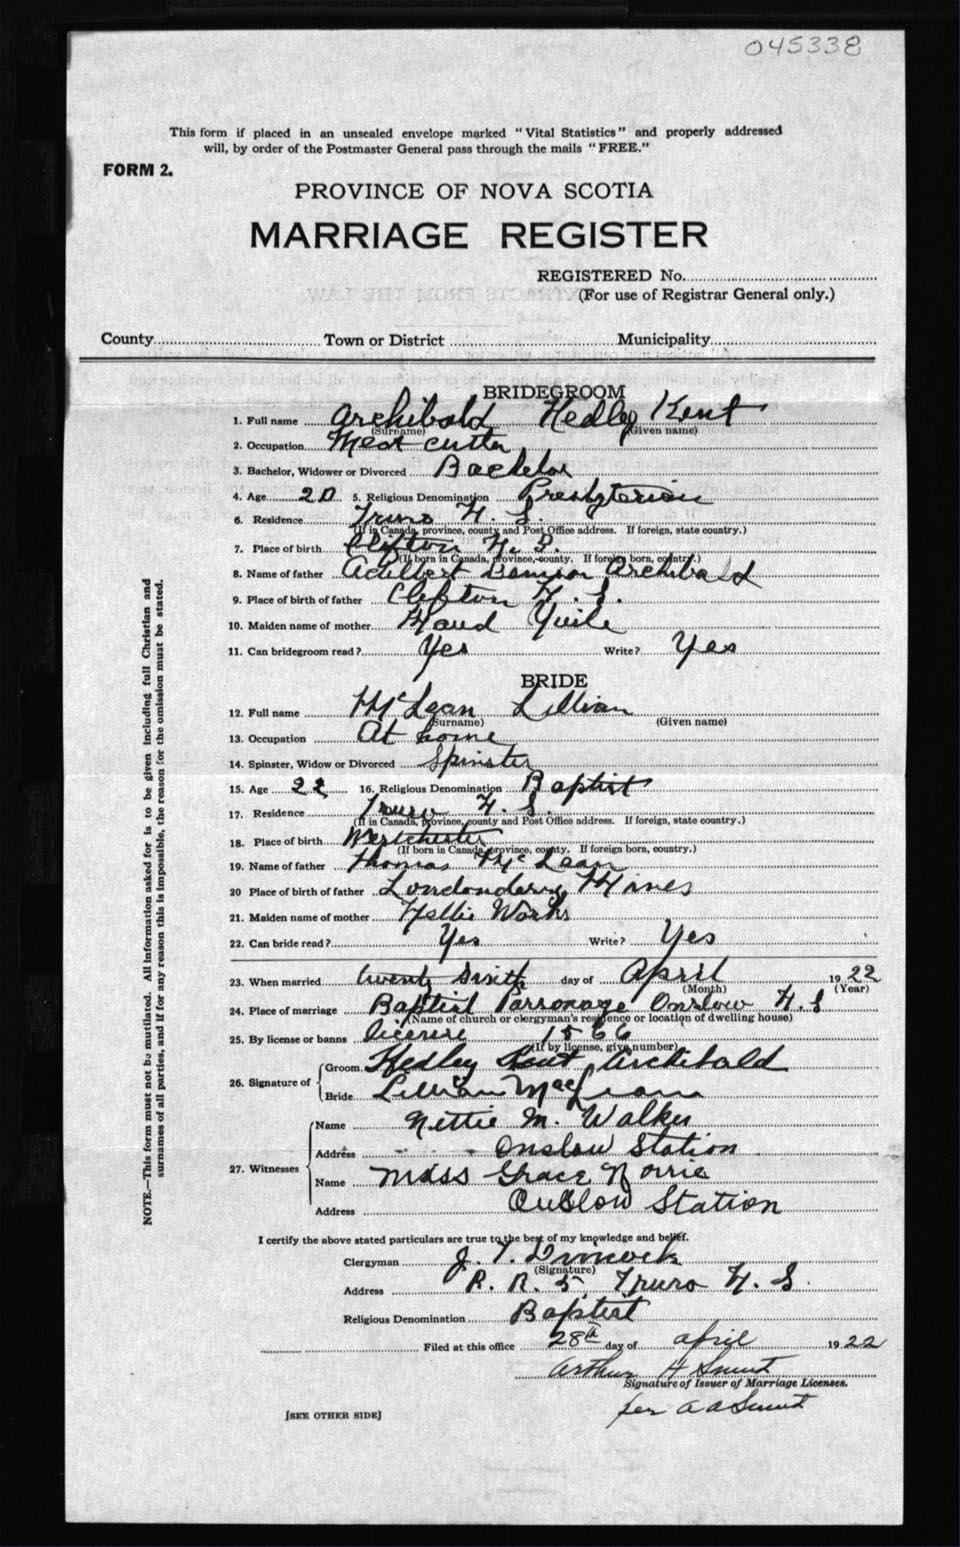 045338
This form if placed in an unsealed envelope marked "Vital Statistics" and properly addressed
will, by order of the Postmaster General pass through the mails "FREE."
FORM 2.
PROVINCE OF NOVA SCOTIA
MARRIAGE REGISTER
REGISTERED No.
(For use of Registrar General only.)
EXTRACTS FROM THE LAW
County Town or District Municipality
BRIDEGROOM
1. Full name Archibald Hedley Kent
(Surname) (Given name)
2. Occupation Meat cutter
3. Bachelor, Widower or Divorced Bachelor
4. Age 20 5. Religious Denomination Presbyterian
6. Residence Truro N. S.
(If in Canada, province, county and Post Office address. If foreign, state country.)
7. Place of birth Clifton N. S.
(If born in Canada, province, county. If foreign born, country.)
8. Name of father Adelbert Archibald
9. Place of birth of father Clifton N. S.
10. Maiden name of mother Maud Yuile
11. Can bridegroom read? Yes Write? Yes
BRIDE
12. Full name McLean Lillian
(Surname) (Given name)
13. Occupation At home
14. Spinster, Widow or Divorced Spinster
15. Age 22 16. Religious Denomination Baptist
17. Residence Truro N. S.
(If in Canada, province, county and Post Office address. If foreign, state country.)
18. Place of birth Westchester
(If born in Canada, province, county. If foreign born, country.)
19. Name of father Thomas McLean
20 Place of birth of father Londonderry Mines
21. Maiden name of mother Nellie Works
22. Can bride read? Yes Write? Yes
23. When married twenty Sixth day of April 1922
(Month) (Year)
24. Place of marriage Baptist Parsonage Onslow N. S
(Name of church or clergyman's residence or location of dwelling house)
25. By license or banns license 1566
(If by license, give number)
26. Signature of Groom Hedley Kent Archibald
Bride Lillian MacLean
27. Witnesses Name Nettie M. Walker
Address Onslow Station
Name Miss Grace Norrie
Address Onslow Station
I certify the above stated particulars are true to the best of my knowledge and belief.
Clergyman J. T. Dimock
(Signature)
Address R. R. 5. Truro N. S.
Religious Denomination Baptist
Filed at this office 28th day of April 1922
Arthur H Smith
Signature of Issuer of Marriage Licenses.
per A A Smith
[SEE OTHER SIDE]
NOTE.—This form must not be mutilated. All information asked for is to be given including full Christian and
surnames of all parties, and if for any reason this is impossible, the reason for the omission must be stated.